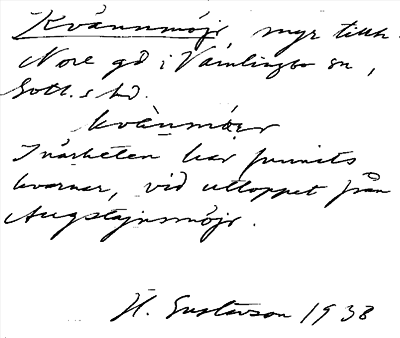 Kvännmöjr myr tillh.
Nore gd i Vamlingbo sn,
Gotl.s hd.
kvènmö́i̯r
I närheten har funnits
kvarnar, vid utloppet från
Augstajnsmöjr.
H. Gustavson 1938